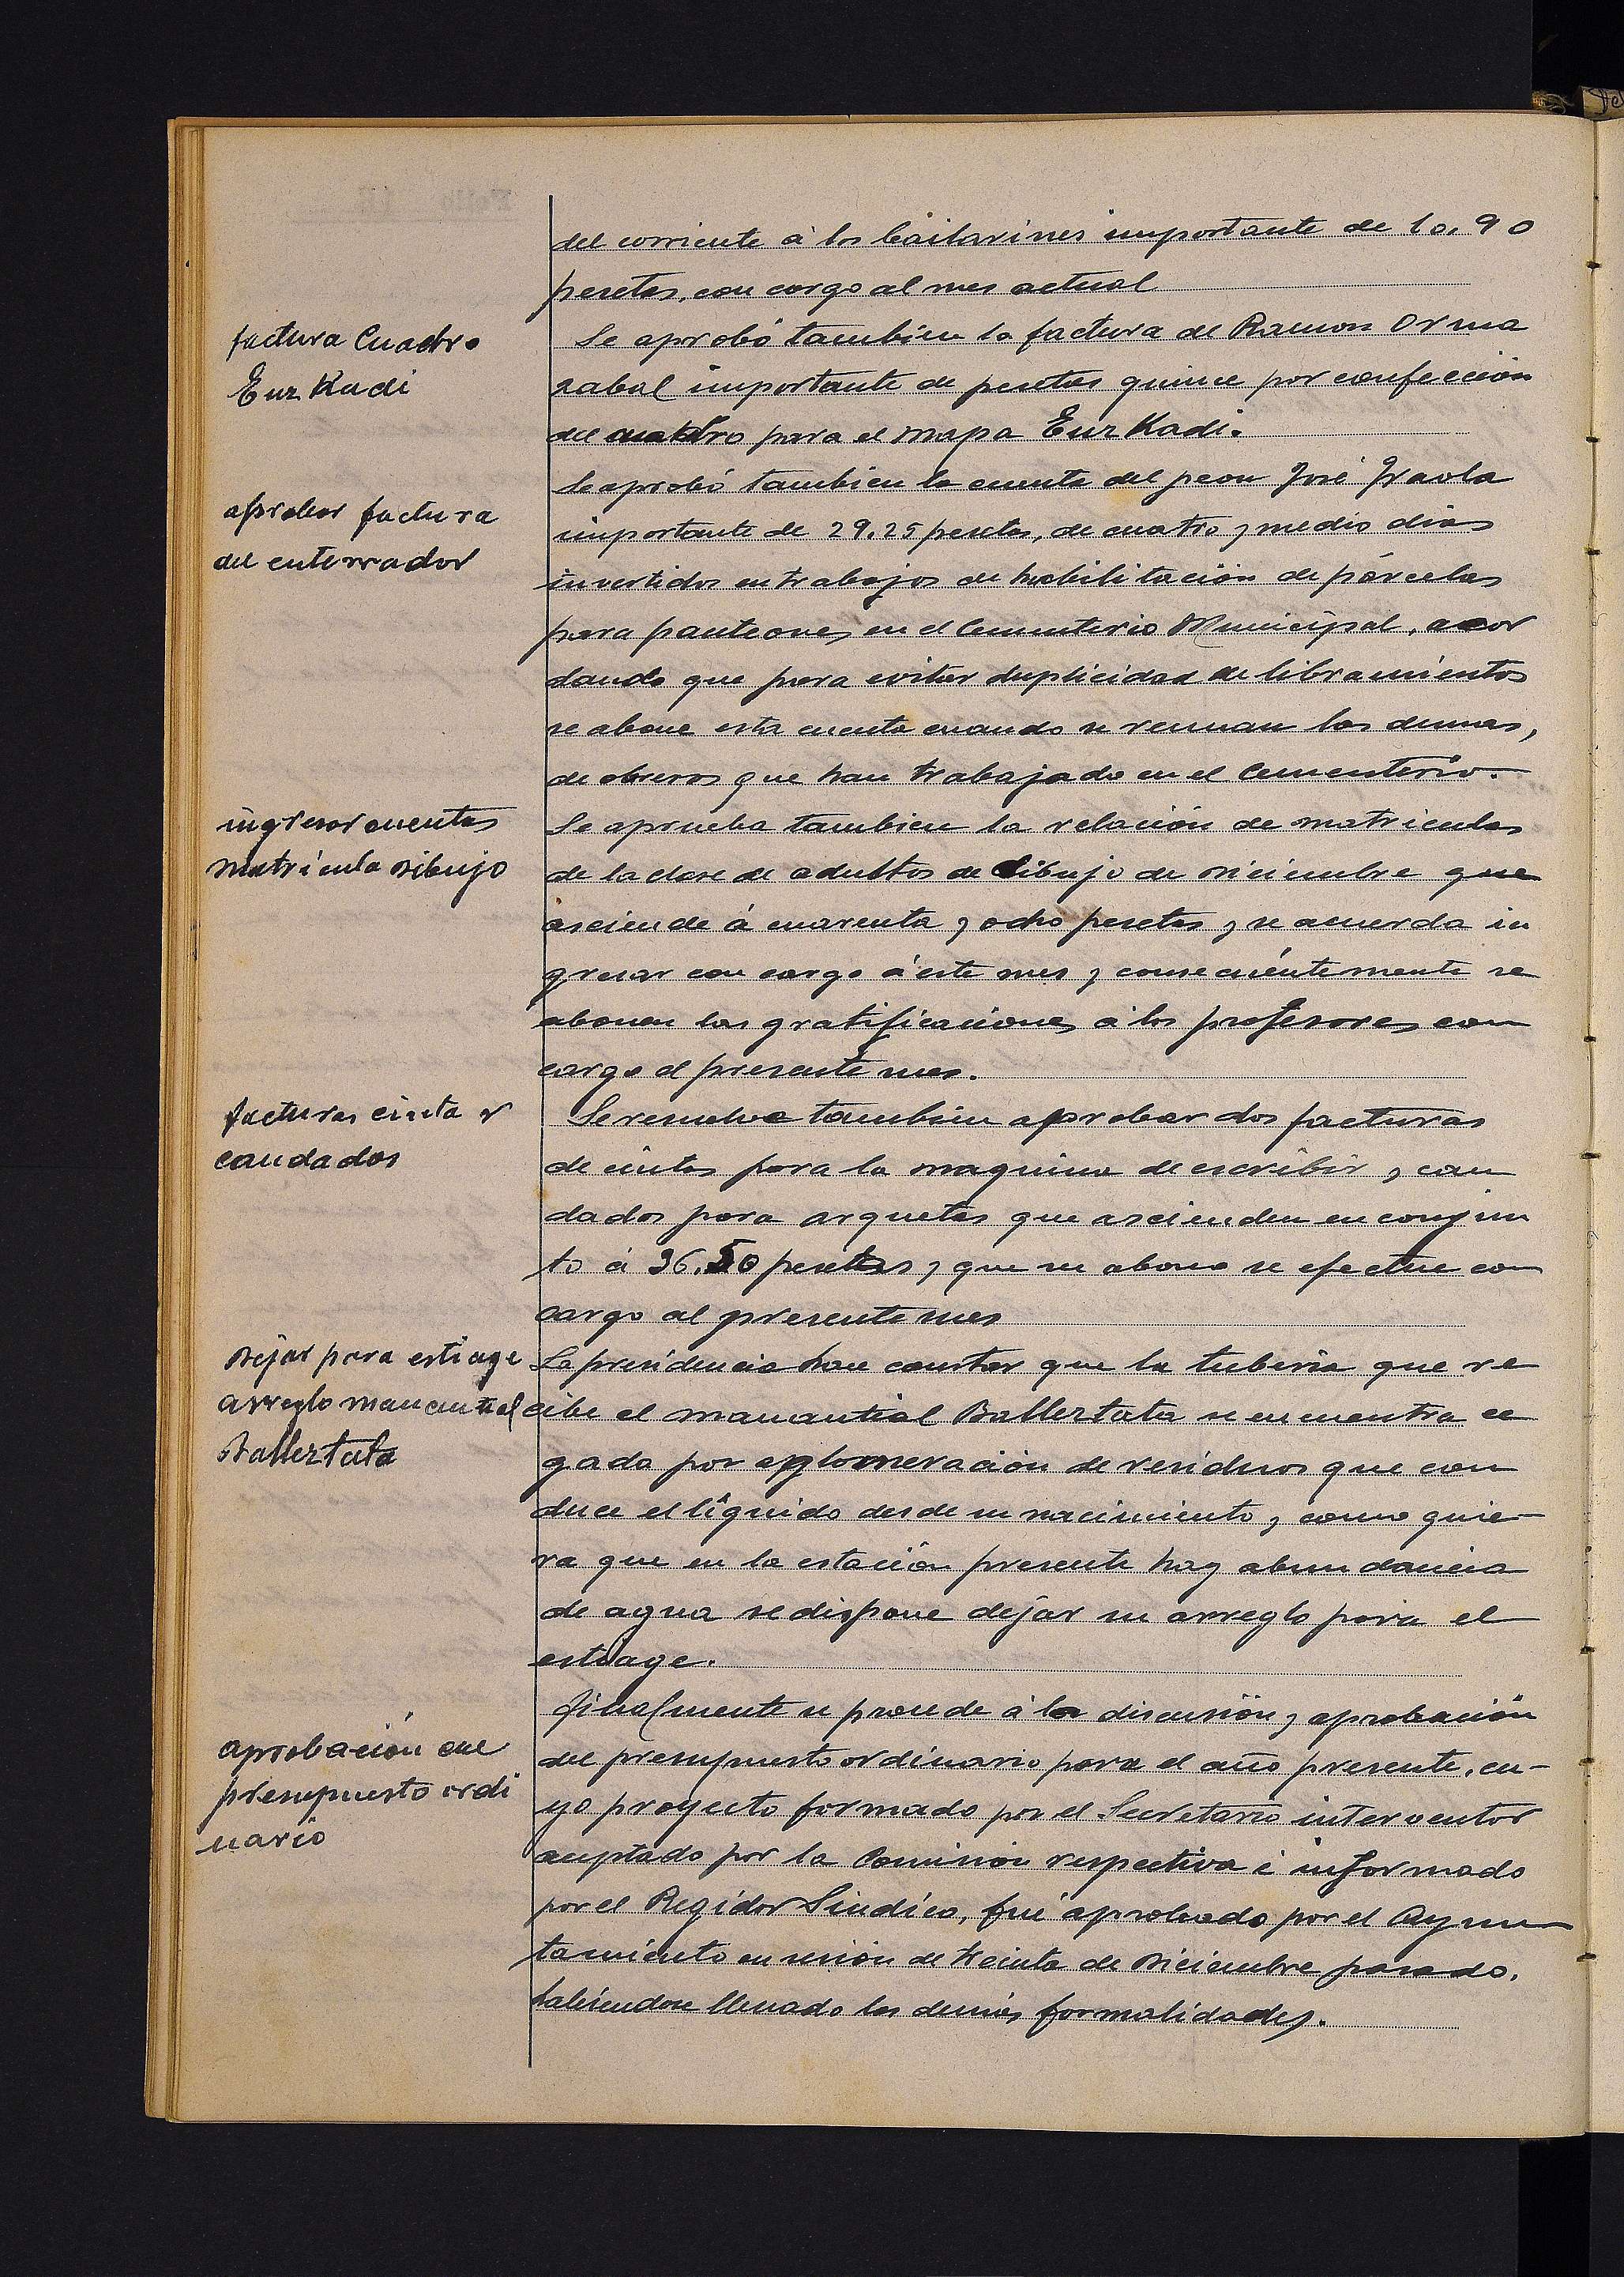 del corriente á los bailarines importante de 10,90
pesetas, con cargo al mes actual
factura Cuadro
Euz Kadi
Se aprobó tambien la factura de Ramon Orma
zabal importante de pesetas quince por confección
del cuadro para el mapa Euz Kadi.
aprobar factura
del enterrador
Se aprobó tambien la cuenta del peon José Iraola
importante de 29.25 pesetas, de cuatro y medio dias
invertidos en trabajos de habilitación de parcelas
para panteones en el Cementerio Municipal, acor
dando que para evitar duplicidad de libramientos
se abone esta cuenta cuando se reunan las demas,
de obreros que han trabajado en el Cementerio.
ingresar cuentas
matrícula dibujo
Se aprueba tambien la relación de matriculas
de la clase de adultos de dibujo de Diciembre que
asciende á cuarenta y ocho pesetas y se acuerda in
gresar con cargo á este mes y consecuéntemente se
abonen las gratificaciones á los profesores con
cargo al presente mes.
facturas cinta y
candados
Se resuelve tambien aprobar dos facturas
de cintas para la maquina de escribir y can
dados para arquetas que ascienden en conjun
to á 36,50 pesetas y que su abono se efectue con
cargo al presente mes
Dejar para estiage
arreglo manantial
Ballerztata
La presidencia hace constar que la tuberia que re
cibe el manantial Ballerztata se encuentra ce
gada por aglomeración de residuos que con
duce el líquido desde su nacimiento y como quie-
ra que en la estación presente hay abundancia
de agua se dispone dejar su arreglo para el
estiage.
aprobación del
presupuesto ordi
nario
Finalmente se procede á la discusión y aprobación
del presupuesto ordinario para el año presente, cu-
yo proyecto formado por el Secretario interventor
aceptado por la Comisión respectiva é informado
por el Regidor Síndico, fué aprobado por el Ayun
tamiento en sesión de treinta de Diciembre pasado,
habiendose llenado las demás formalidades.